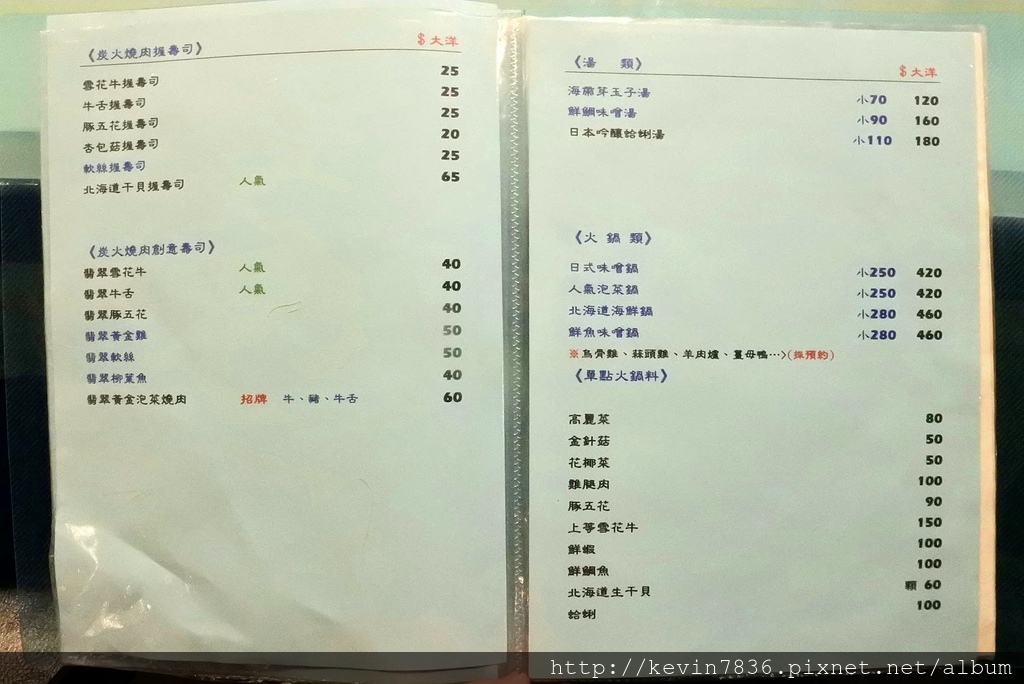 《炭火燒肉握壽司》 $大洋
雪花牛握壽司 25
牛舌握壽司 25
豚五花握壽司 25
杏包菇握壽司 20
軟絲握壽司 25
北海道干貝握壽司 人氣 65
《炭火燒肉創意壽司》
翡翠雪花牛 人氣 40
翡翠牛舌 人氣 40
翡翠豚五花 40
翡翠黃金雞 50
翡翠軟絲 50
翡翠柳葉魚 40
翡翠黃金泡菜燒肉 招牌 牛、豬、牛舌 60
《湯 類》 $大洋
海帶芽玉子湯 小70 120
鮮鯛味噌湯 小90 160
日本吟釀蛤蜊湯 小110 180
《火 鍋 類》
日式味噌鍋 小250 420
人氣泡菜鍋 小250 420
北海道海鮮鍋 小280 460
鮮魚味噌鍋 小280 460
※烏骨雞、蒜頭雞、羊肉爐、薑母鴨…>(採預約)
《單點火鍋料》
高麗菜 80
金針菇 50
花椰菜 50
雞腿肉 100
豚五花 90
上等雪花牛 150
鮮蝦 100
鮮鯛魚 100
北海道生干貝 顆 60
蛤蜊 100
http://kevin7836.pixnet.net/album